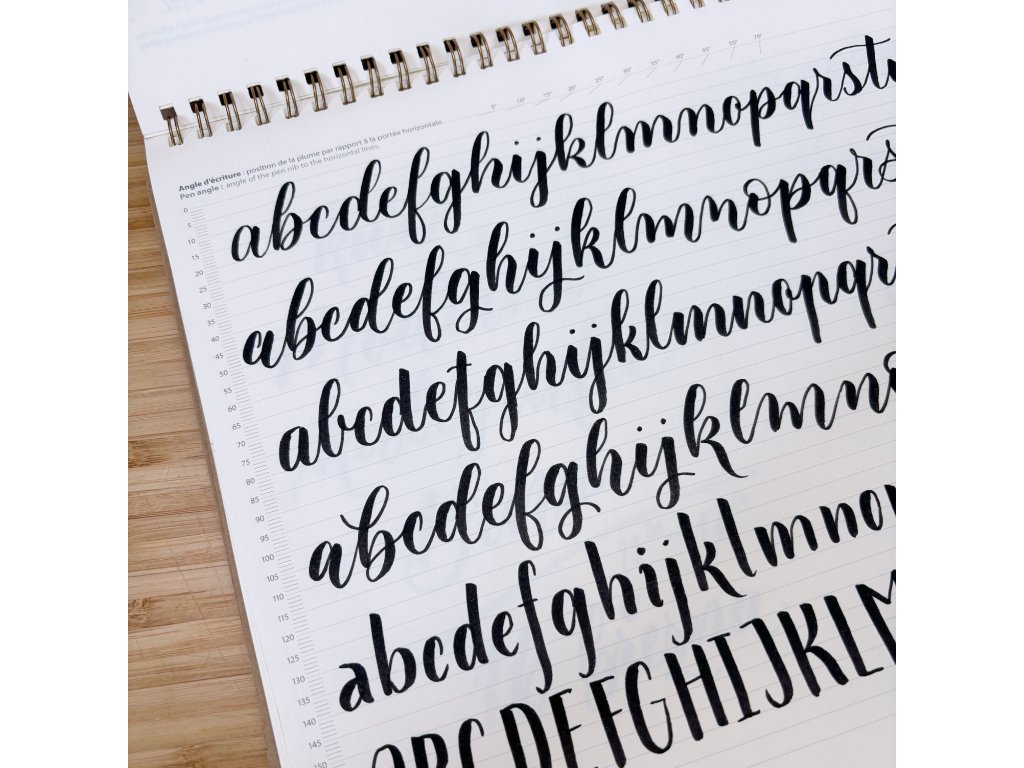 5° 10° 15° 20° 25° 30° 35° 40° 45° 55° 70°
Angle d'écriture : position de la plume par rapport à la portée horizontale.
Pen angle : angle of the pen nib to the horizontal lines.
0
5
10
15
20
25
30
35
40
45
50
55
60
65
70
75
80
85
90
95
100
105
110
115
120
125
130
135
140
145
150
abcdefghijklmnopqrst
abcdefghijklmnopqrs
abcdefghijklmnopqr
abcdefghijklmno
abcdefghijklmno
ABCDEFGHIJKLM